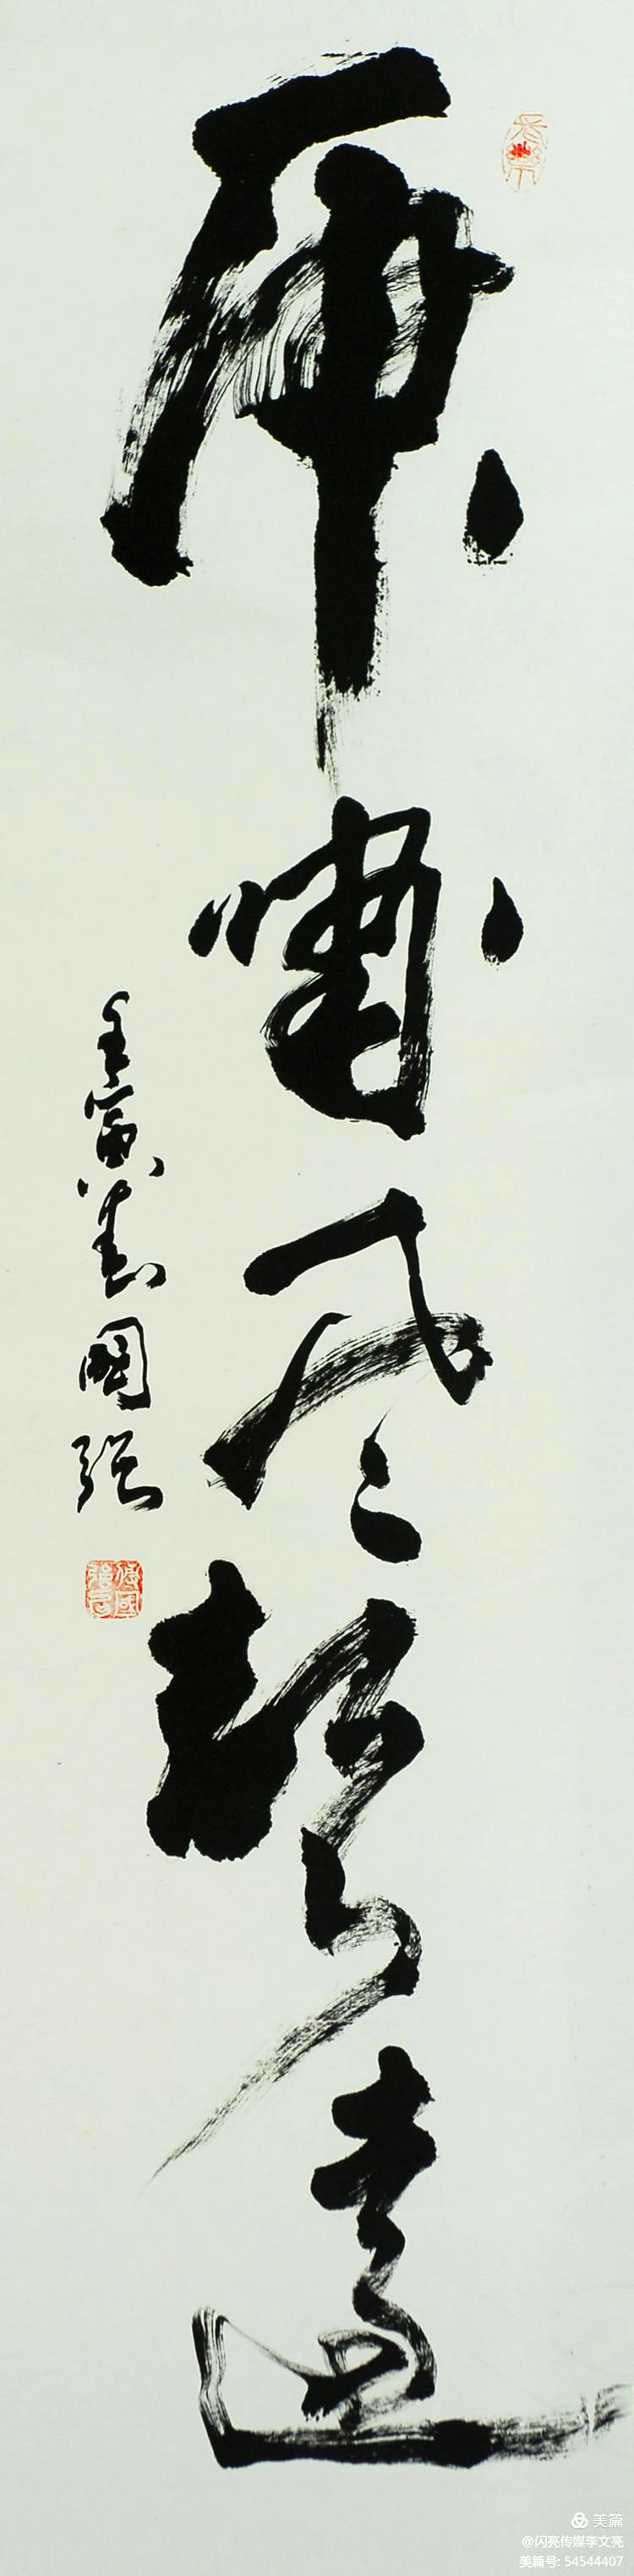 虎嘯風聲遠
壬寅春國強
美篇
@闪亮传媒李文亮
美篇号: 54544407